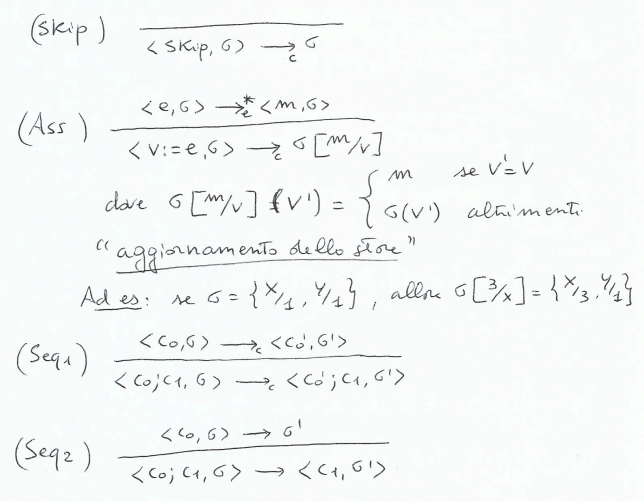 (Skip) ─────────
<skip, σ> →c σ
(Ass) <e, σ> →*e <m, σ>
<v:=e, σ> →c σ[m/v]
dove σ[m/v](v') = { m se v'=v
σ(v') altrimenti
"aggiornamento dello store"
Ad es: se σ = {x/1, y/1}, allora σ[3/x] = {x/3, y/1}
(Seq1) <c0, σ> →c <c0', σ'>
<c0; c1, σ> →c <c0'; c1, σ'>
(Seq2) <c0, σ> → σ'
<c0; c1, σ> → <c1, σ'>